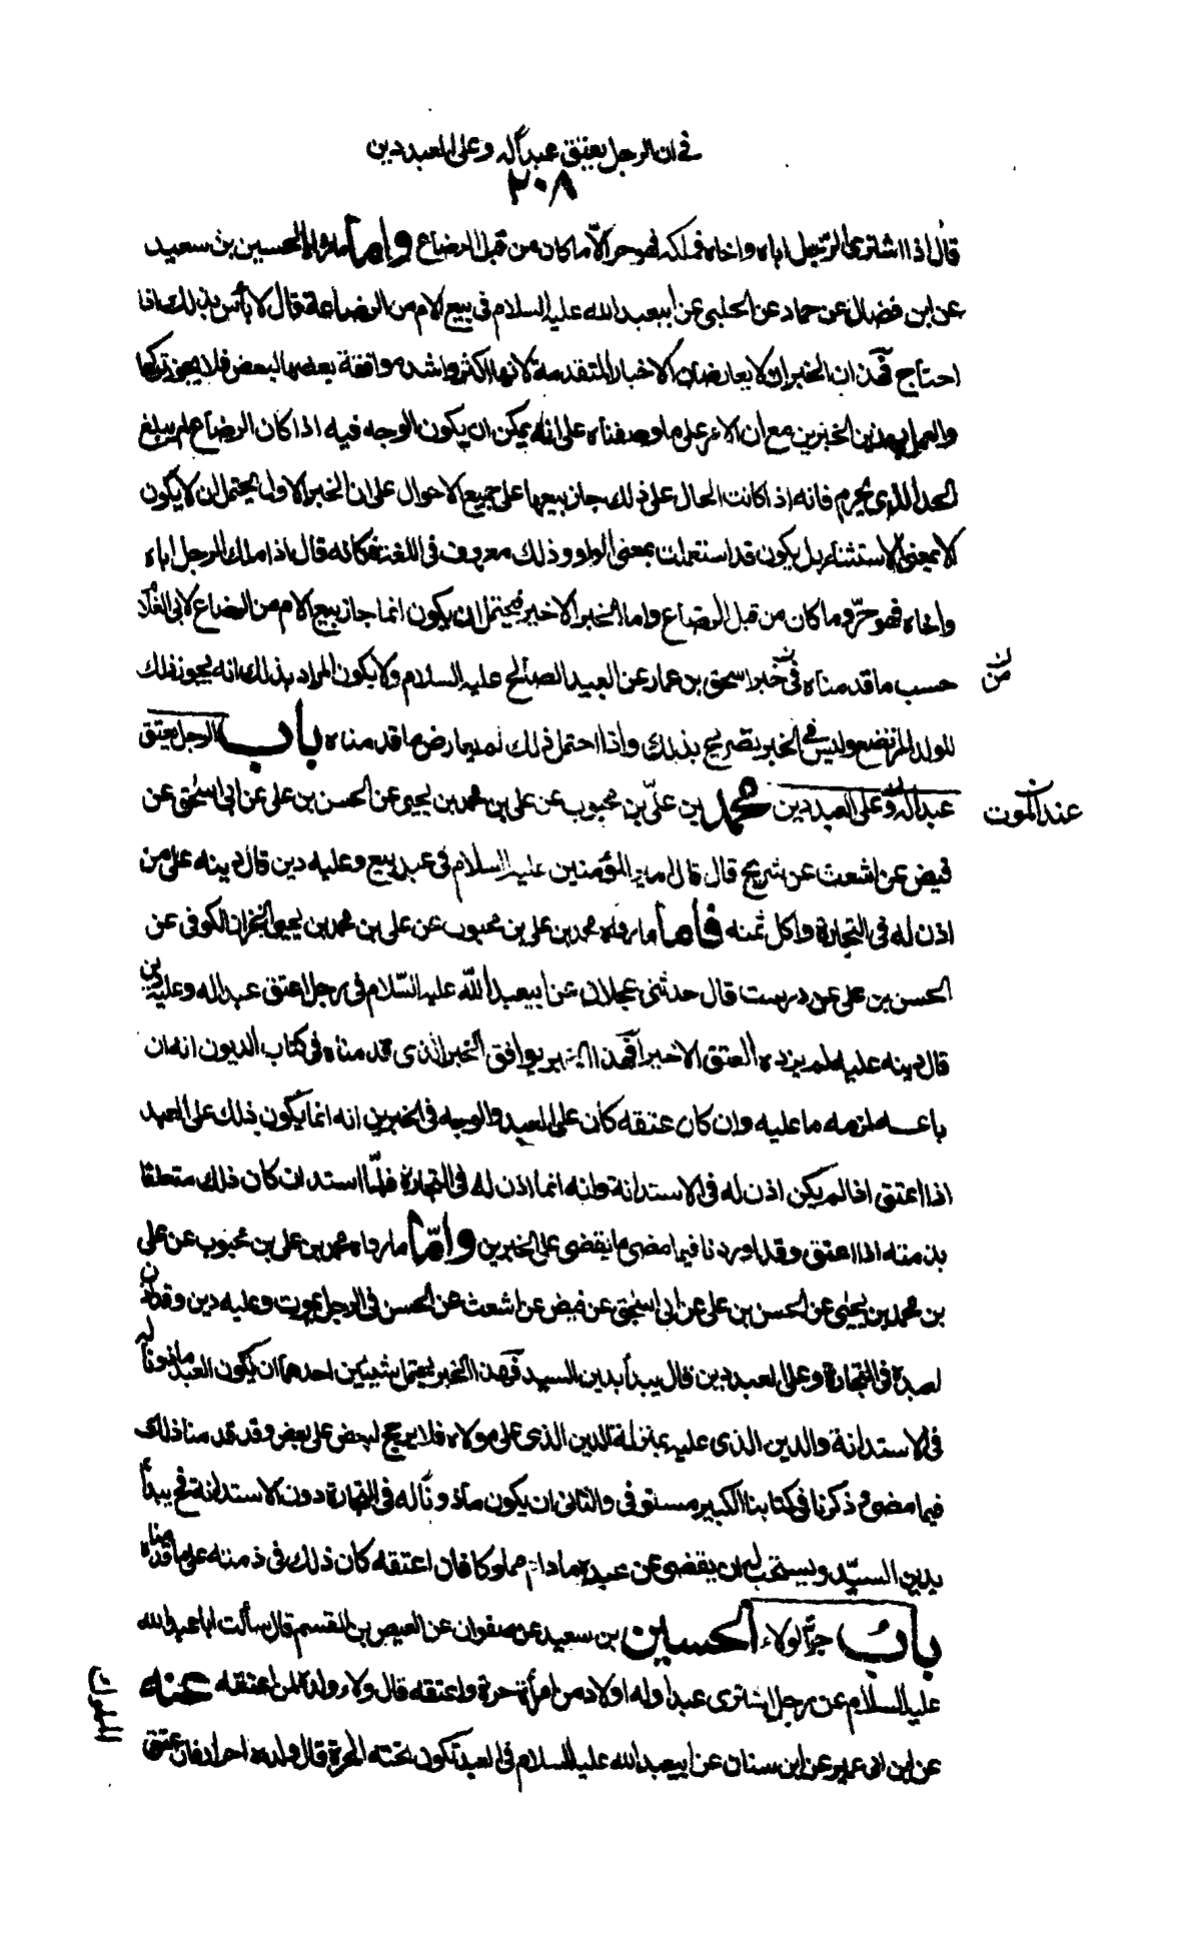 في ان الرجل يعتق عبداً له وعلى العبد دين
٢٠٨
قال اذا اشترى الرجل اباه واخاه فملكه فهو حر الّا ما كان من قبل الرضاع وامّا ما رواه الحسين بن سعيد
عن ابن فضال عن حماد عن الحلبي عن ابيعبد الله عليه السلام في بيع الام من الرضاعة قال لا بأس بذلك اذا
احتاج فهذان الخبران لا يعارضان الاخبار المتقدمة لانها اكثر واشد موافقة بعضها لبعض فلا يجوز تركها
والعمل بهذين الخبرين مع ان الامر على ما وصفناه على انه يمكن ان يكون الوجه فيه اذا كان الرضاع لم يبلغ
الحد الذي يحرم فانه اذا كانت الحال على ذلك جاز بيعها على جميع الاحوال على ان الخبر الاول يحتمل ان لا يكون
الا بمعنى الاستثناء بل يكون قد استعملت بمعنى الواو وذلك معروف في اللغة فكانه قال اذا ملك الرجل اباه
واخاه فهو حرّ وما كان من قبل الرضاع واما الخبر الاخير فيحتمل ان يكون انما جاز بيع الام من الرضاع لابي الغلام
حسب ما قدمناه في خبر اسحق بن عمار عن العبد الصالح عليه السلام ولا يكون المراد بذلك انه يجوز ذلك
من
للولد المرتضع وليس في الخبر تصريح بذلك واذا احتمل ذلك لم يعارض ما قدمناه باب الرجل يعتق
عبداً له وعلى العبد دين محمد بن علي بن محبوب عن علي بن محمد بن يحيى عن الحسن بن علي عن ابي اسحق عن
عند الموت
فيض عن اشعث عن شريح قال قال امير المؤمنين عليه السلام في عبد بيع وعليه دين قال دينه على من
اذن له في التجارة واكل ثمنه فأما ما رواه محمد بن علي بن محبوب عن علي بن محمد بن يحيى الخزاز الكوفي عن
الحسن بن علي عن درست قال حدثني عجلان عن ابيعبد الله عليه السّلام في رجل اعتق عبداً له وعليه دين
قال دينه عليه لم يزده العتق الا خيراً فهذا الخبر يوافق الخبر الذي قدمناه في كتاب الديون انه ان
باعه لزمه ما عليه وان كان عتقه كان على العبد والوجه في الخبرين انه انما يكون ذلك على العبد
اذا اعتق اذا لم يكن اذن له في الاستدانة وانه انما اذن له في التجارة فلمّا استدان كان ذلك متعلقا
بذمته اذا اعتق وقد اوردنا فيما مضى ما يقضي على الخبرين وامّا ما رواه محمد بن علي بن محبوب عن علي
بن محمد بن يحيى عن الحسن بن علي عن ابي اسحق عن فيض عن اشعث عن الحسن في الرجل يموت وعليه دين وقد اذن
لعبده في التجارة وعلى العبد دين قال يبدأ بدين السيد فهذا الخبر يحتمل شيئين احدهما ان يكون العبد مأذونا له
في الاستدانة والدين الذي عليه بمنزلة الدين الذي على مولاه فلا يرجح لبعض على بعض وقد قدمنا ذلك
فيما مضى وذكرنا في كتابنا الكبير مستوفى والثاني ان يكون مأذونا له في التجارة دون الاستدانة فح يبدأ
بدين السيّد ويستحب له ان يقضي عن عبده ما دام مملوكا فان اعتقه كان ذلك في ذمته على ما قدمناه
باب جرّ الولاء الحسين بن سعيد عن صفوان عن العيص بن القسم قال سألت ابا عبد الله
عليه السلام عن رجل اشترى عبدا وله اولاد من امرأة حرة واعتقه قال ولاء ولده لمن اعتقه عنه
عن ابن ابي عمير عن ابن سنان عن ابيعبد الله عليه السلام في العبد تكون تحته الحرة قال ولده احرار فان عتق
المملوك